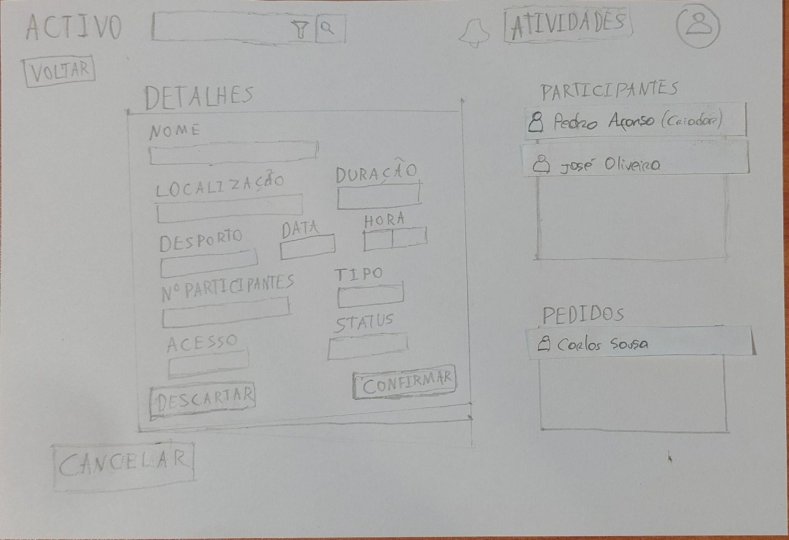 ACTIVO
ATIVIDADES
VOLTAR
DETALHES
NOME
LOCALIZAÇÃO
DURAÇÃO
DESPORTO
DATA
HORA
Nº PARTICIPANTES
TIPO
ACESSO
STATUS
DESCARTAR
CONFIRMAR
CANCELAR
PARTICIPANTES
Pedro Afonso (Criador)
José Oliveira
PEDIDOS
Carlos Sousa